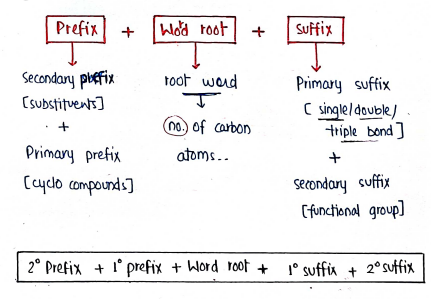 Prefix + Word root + Suffix
Secondary prefix
[substituents]
+
Primary prefix
[cyclo compounds]
root word
no. of carbon
atoms..
Primary suffix
[single/double/
triple bond]
+
secondary suffix
[functional group]
2° Prefix + 1° prefix + Word root + 1° suffix + 2° suffix